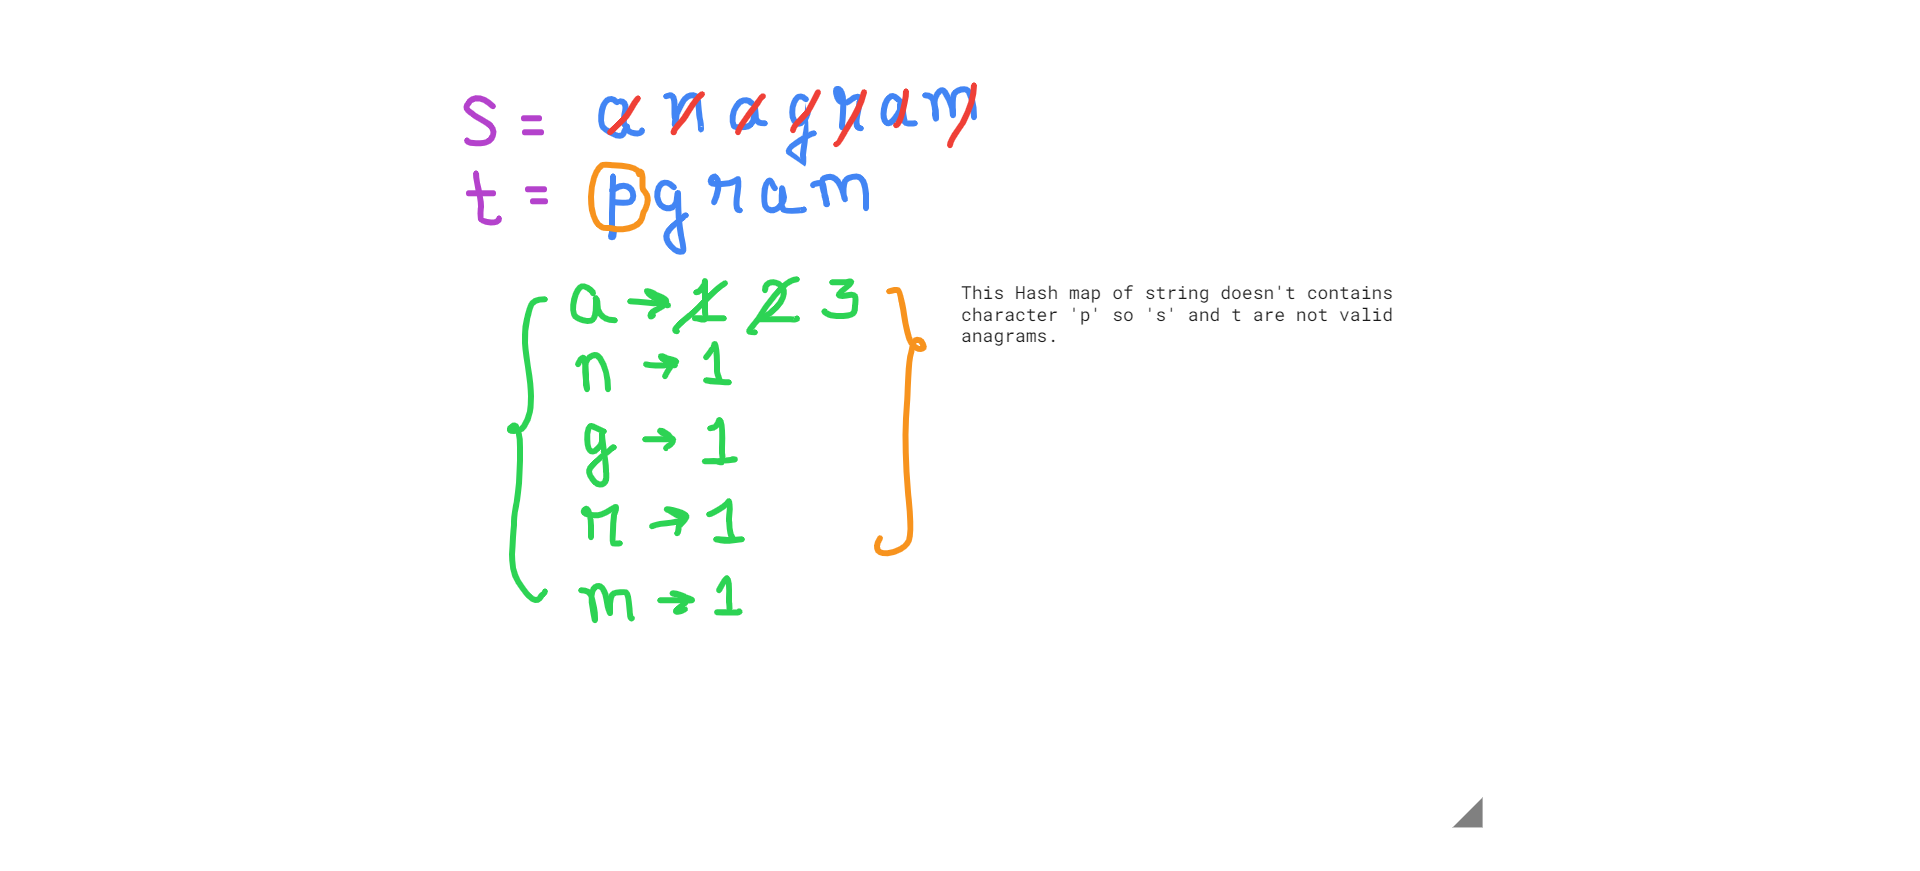 s = anagram
t = pgram
a → 1 2 3
n → 1
g → 1
r → 1
m → 1
This Hash map of string doesn't contains
character 'p' so 's' and t are not valid
anagrams.